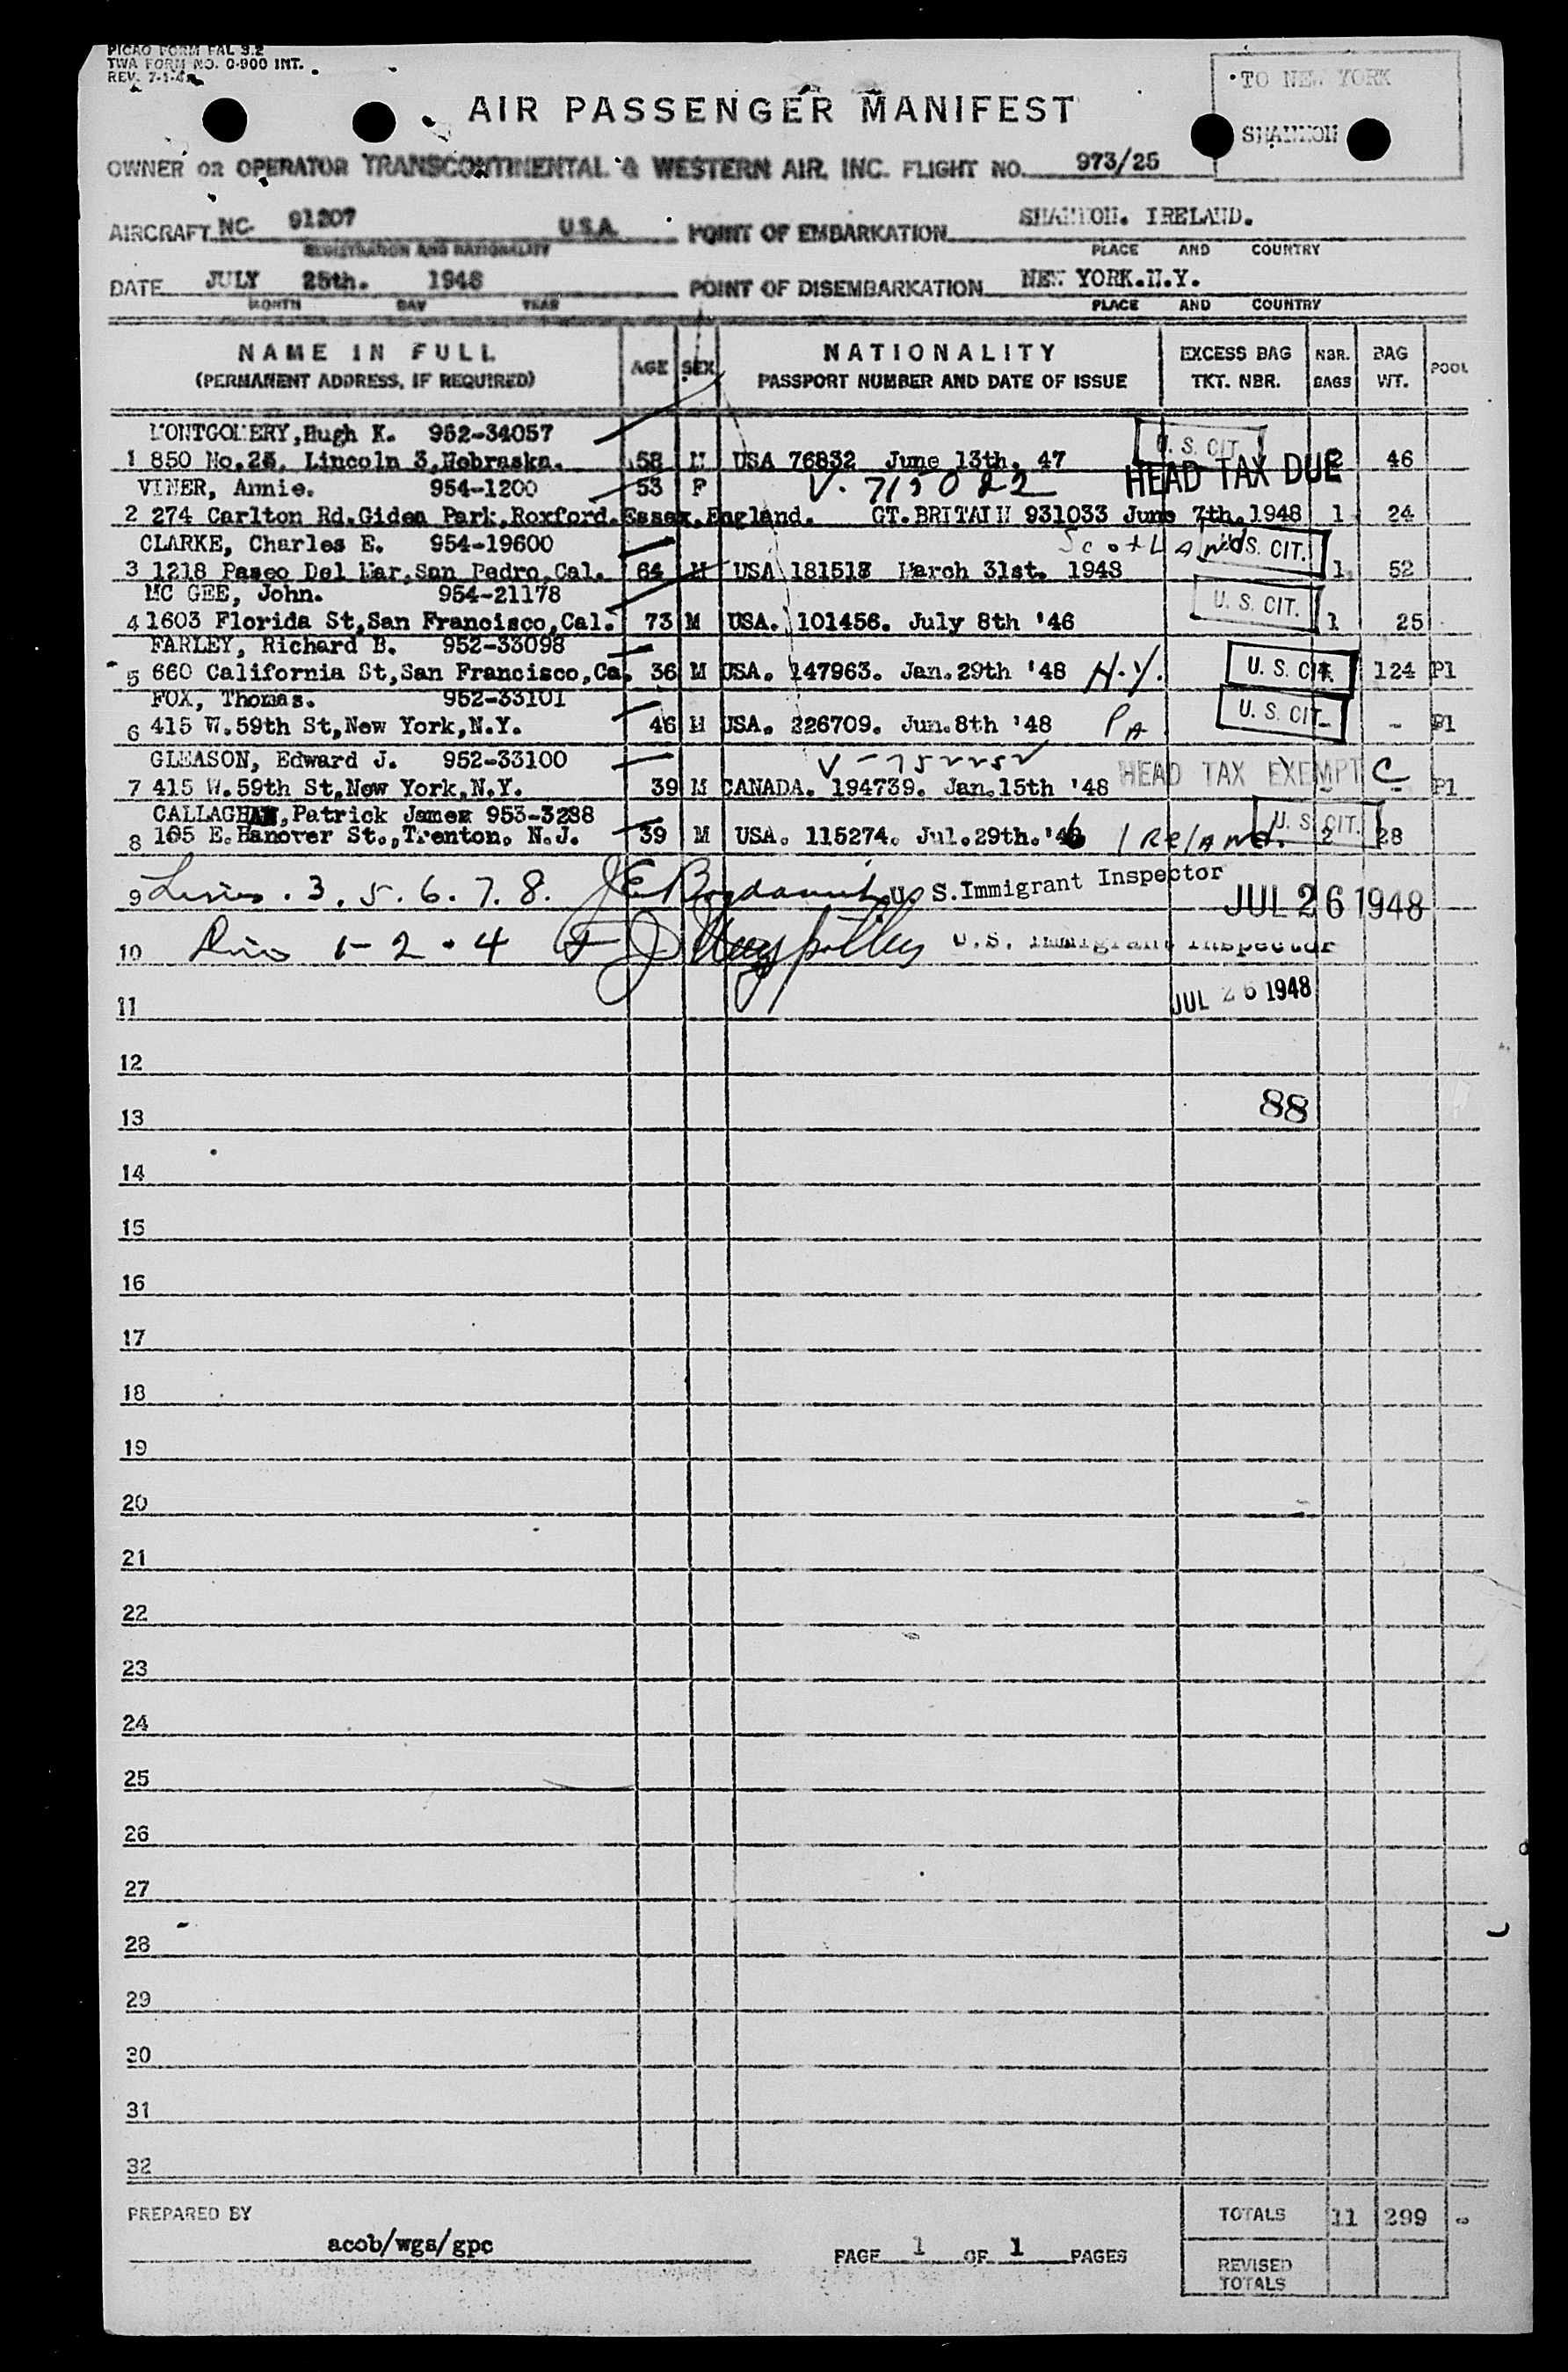 PICAO FORM FAL 3.2
TWA FORM NO. O-900 INT.
REV. 7-1-4
TO NEW YORK
SHANNON
AIR PASSENGER MANIFEST
OWNER OR OPERATOR TRANSCONTINENTAL & WESTERN AIR, INC. FLIGHT NO. 973/25
AIRCRAFT NC- 91207 U.S.A. POINT OF EMBARKATION SHANNON. IRELAND.
REGISTRATION AND NATIONALITY PLACE AND COUNTRY
DATE JULY 25th. 1948 POINT OF DISEMBARKATION NEW YORK.N.Y.
MONTH DAY YEAR PLACE AND COUNTRY
NAME IN FULL AGE SEX NATIONALITY EXCESS BAG NBR. BAG POOL
(PERMANENT ADDRESS, IF REQUIRED) PASSPORT NUMBER AND DATE OF ISSUE TKT. NBR. BAGS WT.
MONTGOMERY,Hugh K. 952-34057 U. S. CIT.
1 850 No.25, Lincoln 3,Nebraska. 58 M USA 76832 June 13th. 47 HEAD TAX DUE 2 46
VINER, Annie. 954-1200 53 F V. 715022
2 274 Carlton Rd.Gidea Park,Roxford.Essex.England. GT.BRITAIN 931033 June 7th.1948 1 24
CLARKE, Charles E. 954-19600 ScotLAnd U. S. CIT.
3 1218 Paseo Del Mar,San Pedro,Cal. 64 M USA 181518 March 31st. 1948 1. 52
MC GEE, John. 954-21178 U. S. CIT.
4 1603 Florida St,San Francisco,Cal. 73 M USA. 101456. July 8th '46 1 25
FARLEY, Richard B. 952-33098
5 660 California St,San Francisco,Ca. 36 M USA. 147963. Jan.29th '48 N.Y. U. S. CIT. 124 P1
FOX, Thomas. 952-33101 U. S. CIT.
6 415 W.59th St,New York,N.Y. 46 M USA. 226709. Jun.8th '48 PA - - P1
GLEASON, Edward J. 952-33100 V-752252 HEAD TAX EXEMPT C
7 415 W.59th St,New York,N.Y. 39 M CANADA. 194739. Jan.15th '48 - - P1
CALLAGHAN,Patrick James 953-3288 U. S. CIT.
8 105 E.Hanover St.,Trenton. N.J. 39 M USA. 115274. Jul.29th.'46 IRelAnd. 2 28
9 Lines . 3. 5. 6. 7. 8. U. S. Immigrant Inspector JUL 26 1948
10 1-2-4 U.S. Immigrant Inspector
11 JUL 26 1948
12
13 88
14
15
16
17
18
19
20
21
22
23
24
25
26
27
28
29
30
31
32
PREPARED BY acob/wgs/gpc PAGE 1 OF 1 PAGES
TOTALS 11 299 -
REVISED TOTALS